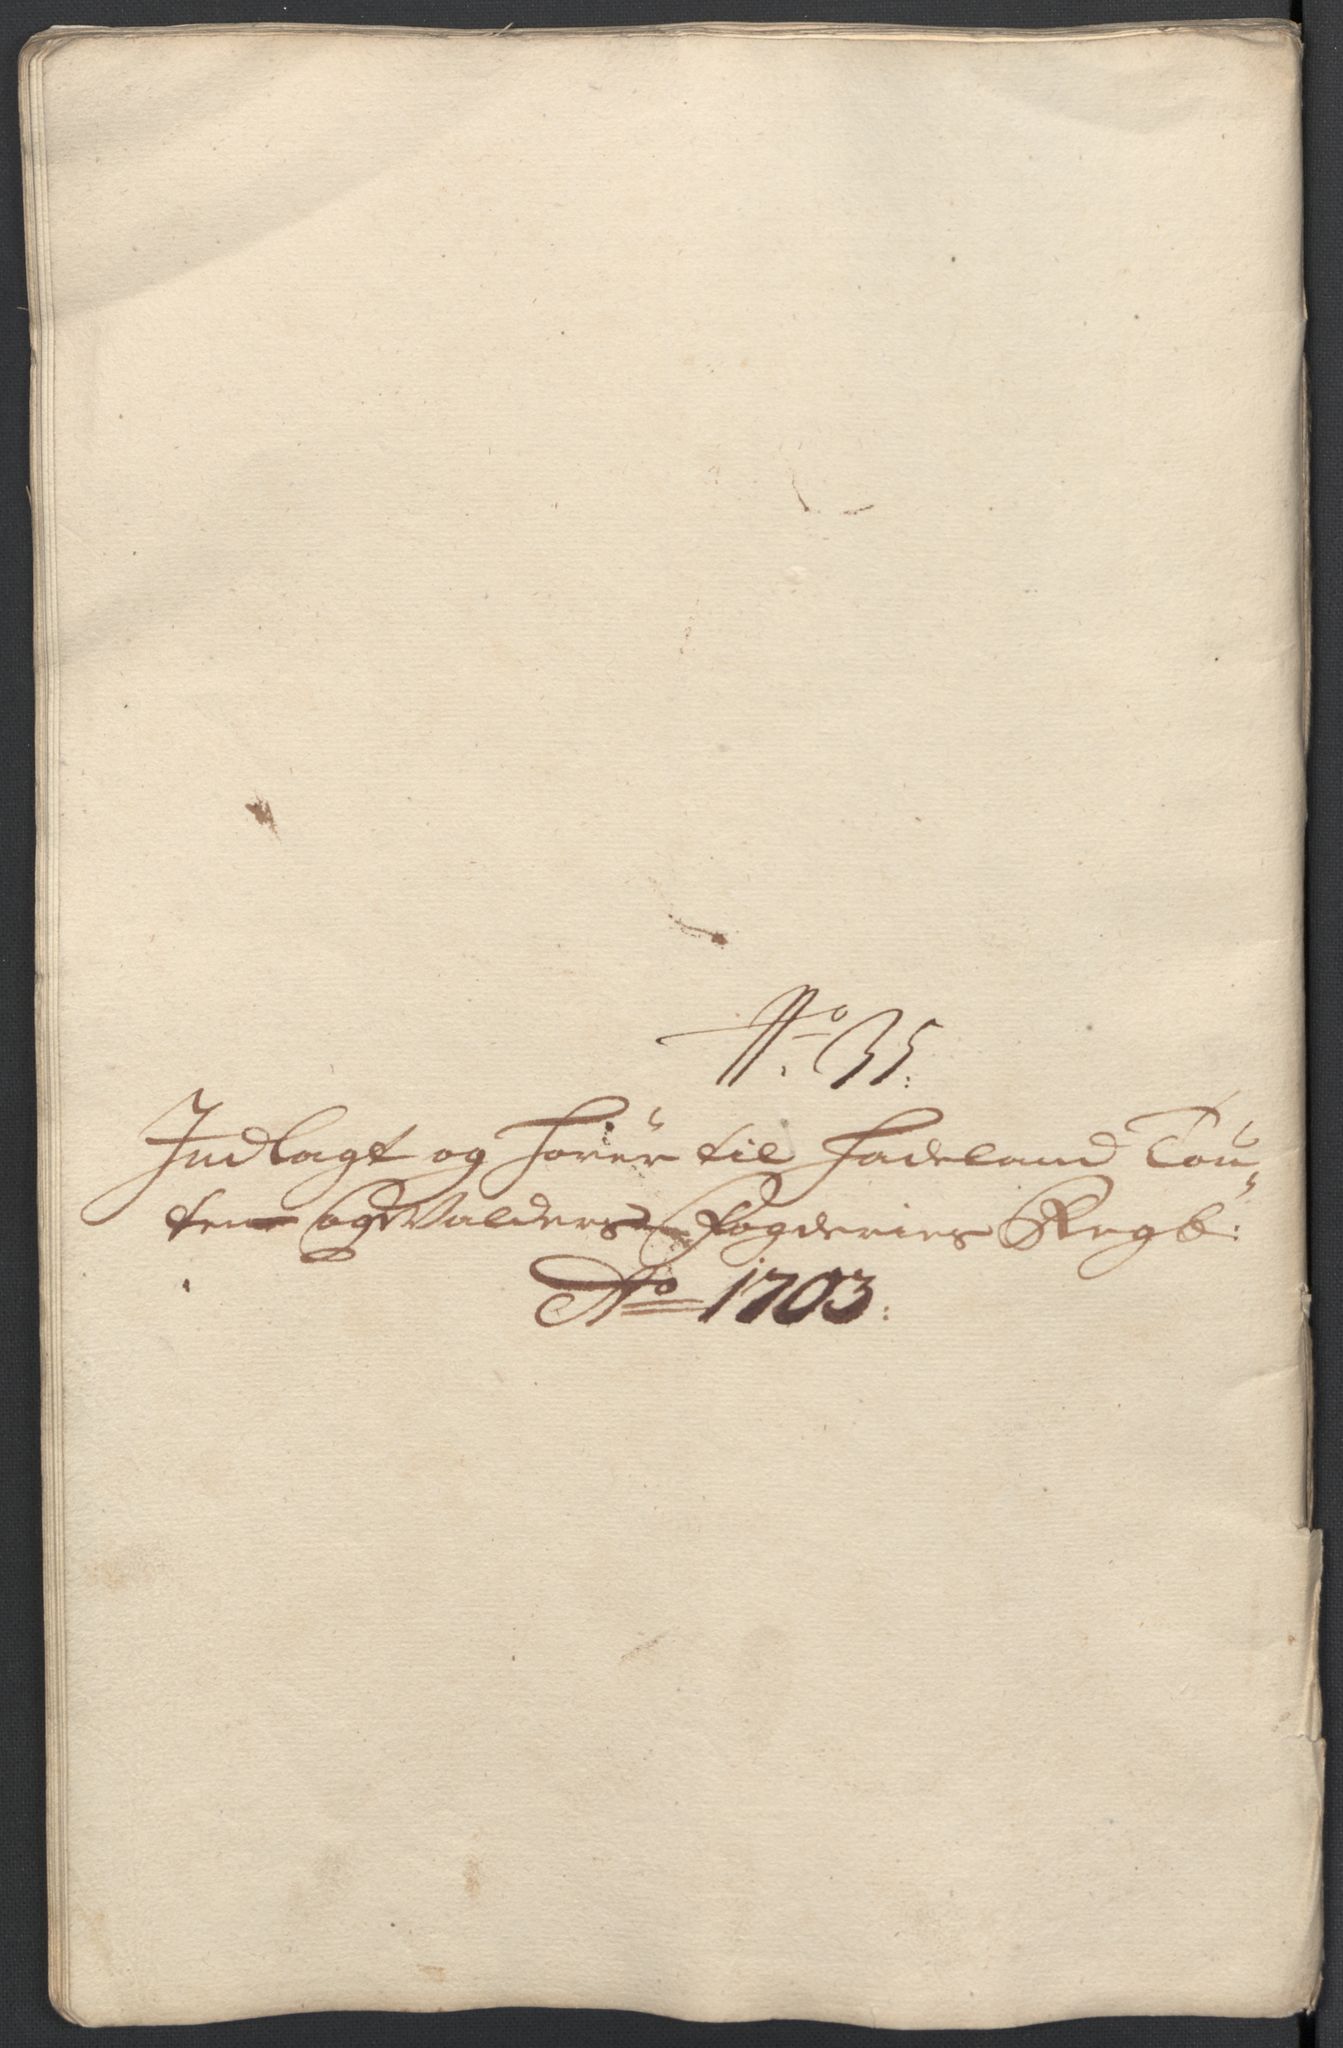 No. 35:
Indlagt og hörer til Hadeland Tou-
ten og Walders Fogderies Regb:
Ao 1703: